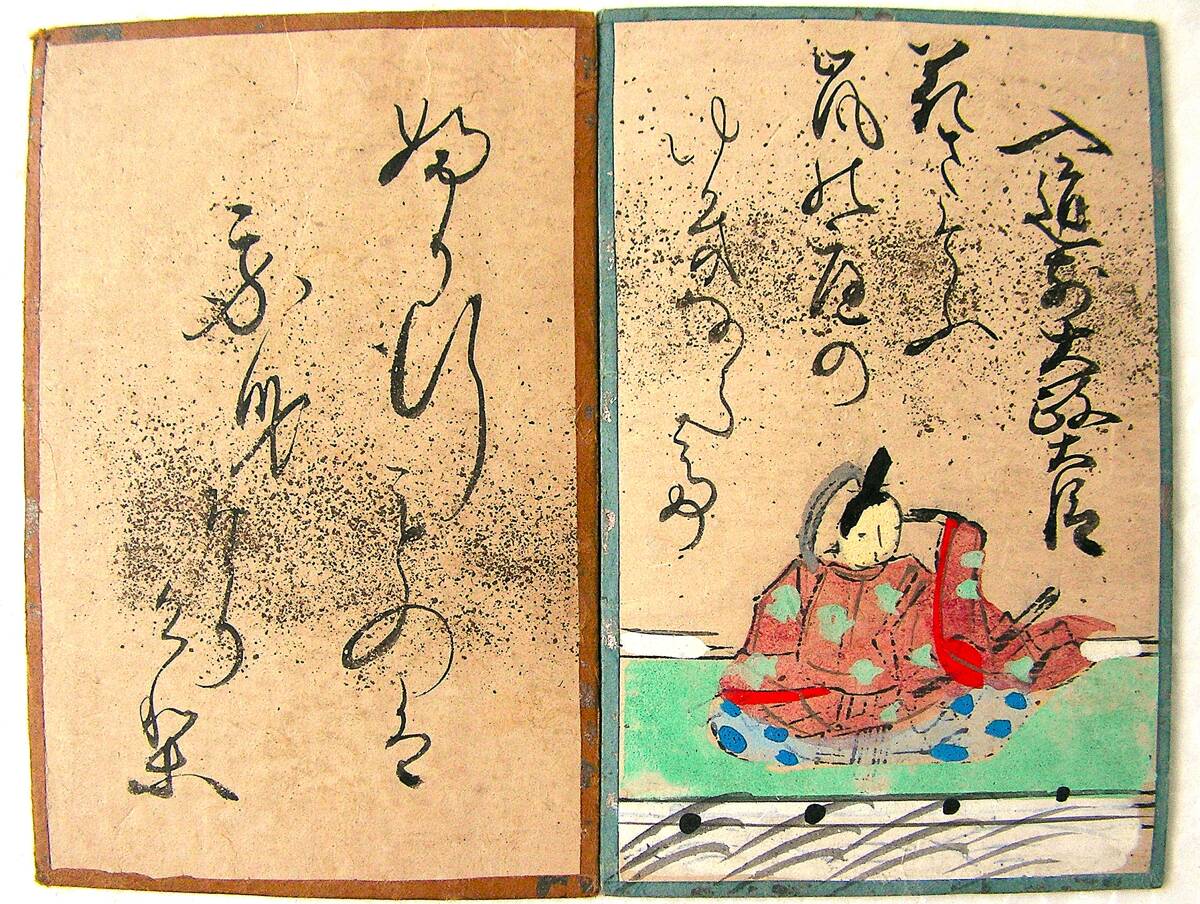 入道前大政大臣
花さそふ
嵐の庭の
ゆきならて
ふり行ものは
我身
なり
けり